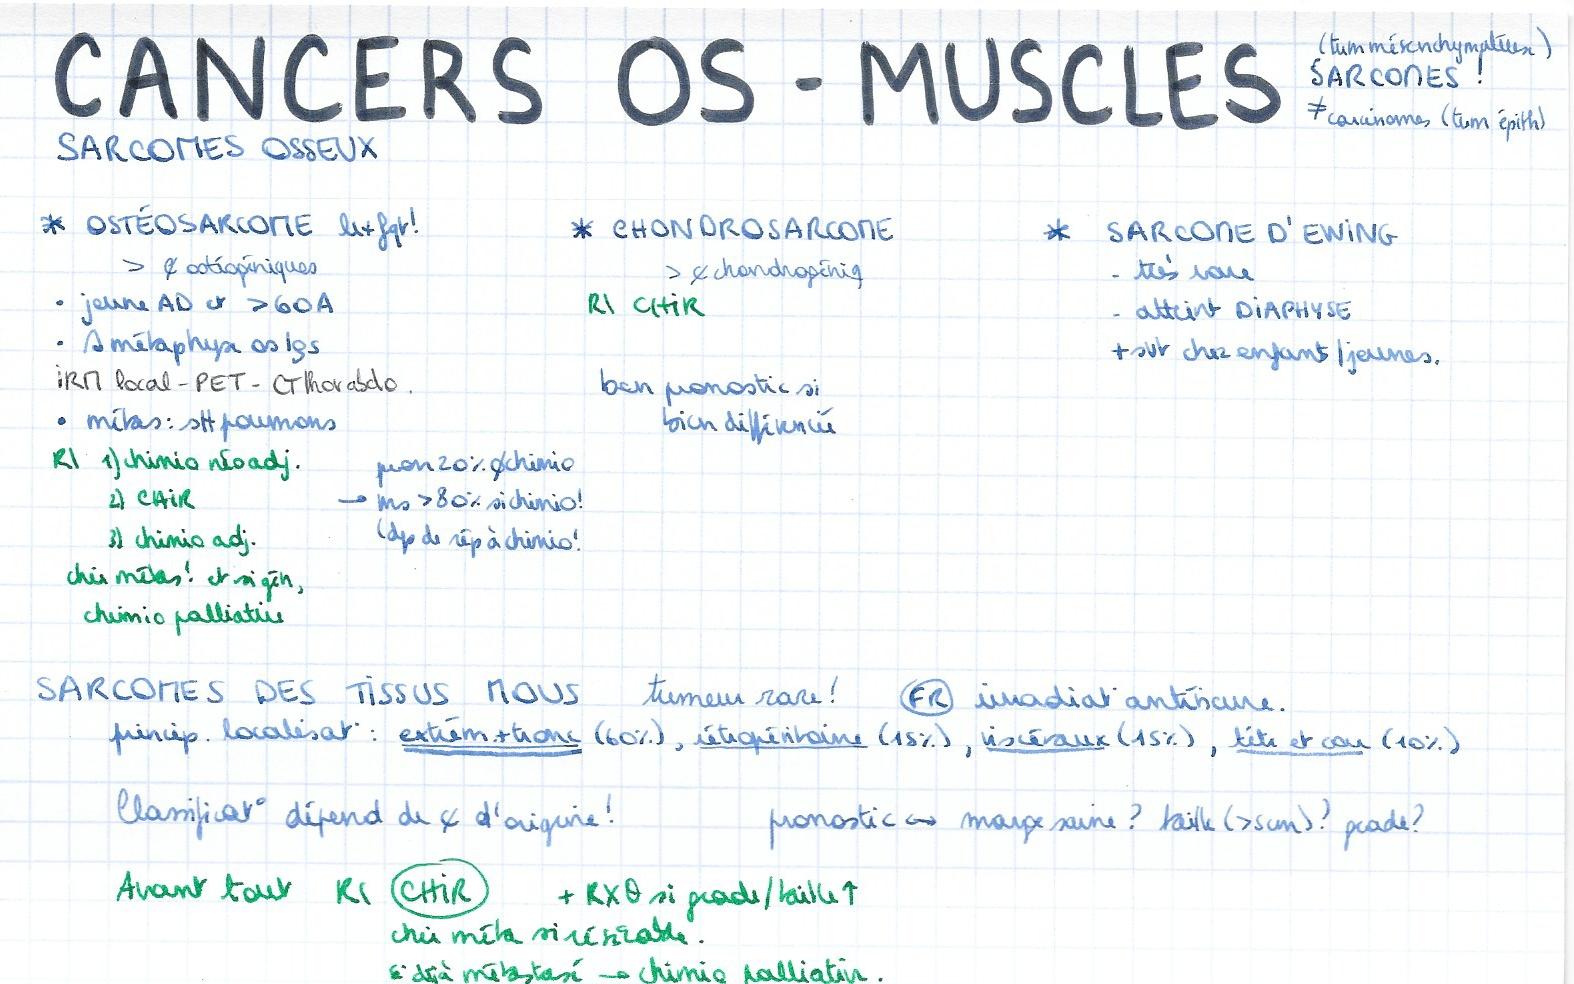 CANCERS OS - MUSCLES
(tum mésenchymateux)
SARCOMES !
≠ carcinomes (tum épith)
SARCOMES OSSEUX
* OSTÉOSARCOME le + fqt !
> ¢ ostéogéniques
• jeune AD et > 60A
• métaphyse os lgs
IRM local - PET - CT thorabdo.
• métas : stt poumons
R\ 1) chimio néoadj.
2) CHIR
3) chimio adj.
chir métas ! et si gén,
chimio palliative
pron 20% chimio
→ ms > 80% si chimio !
(dp de rép à chimio !
* CHONDROSARCOME
> ¢ chondrogéniq
R\ CHIR
bon pronostic si
bien différencié
* SARCOME D'EWING
- très rare
- atteint DIAPHYSE
+ svt chez enfants / jeunes.
SARCOMES DES TISSUS MOUS tumeur rare ! FR irradiat° antérieure.
princip. localisat° : extrém + tronc (60%), rétropéritoine (15%), viscéraux (15%), tête et cou (10%)
Classificat° dépend de ¢ d'origine ! pronostic ↔ marge saine ? taille (>5cm) ? grade ?
Avant tout R\ CHIR + RXθ si grade / taille ↑
chir méta si résécable.
si déjà métastasé → chimio palliative.